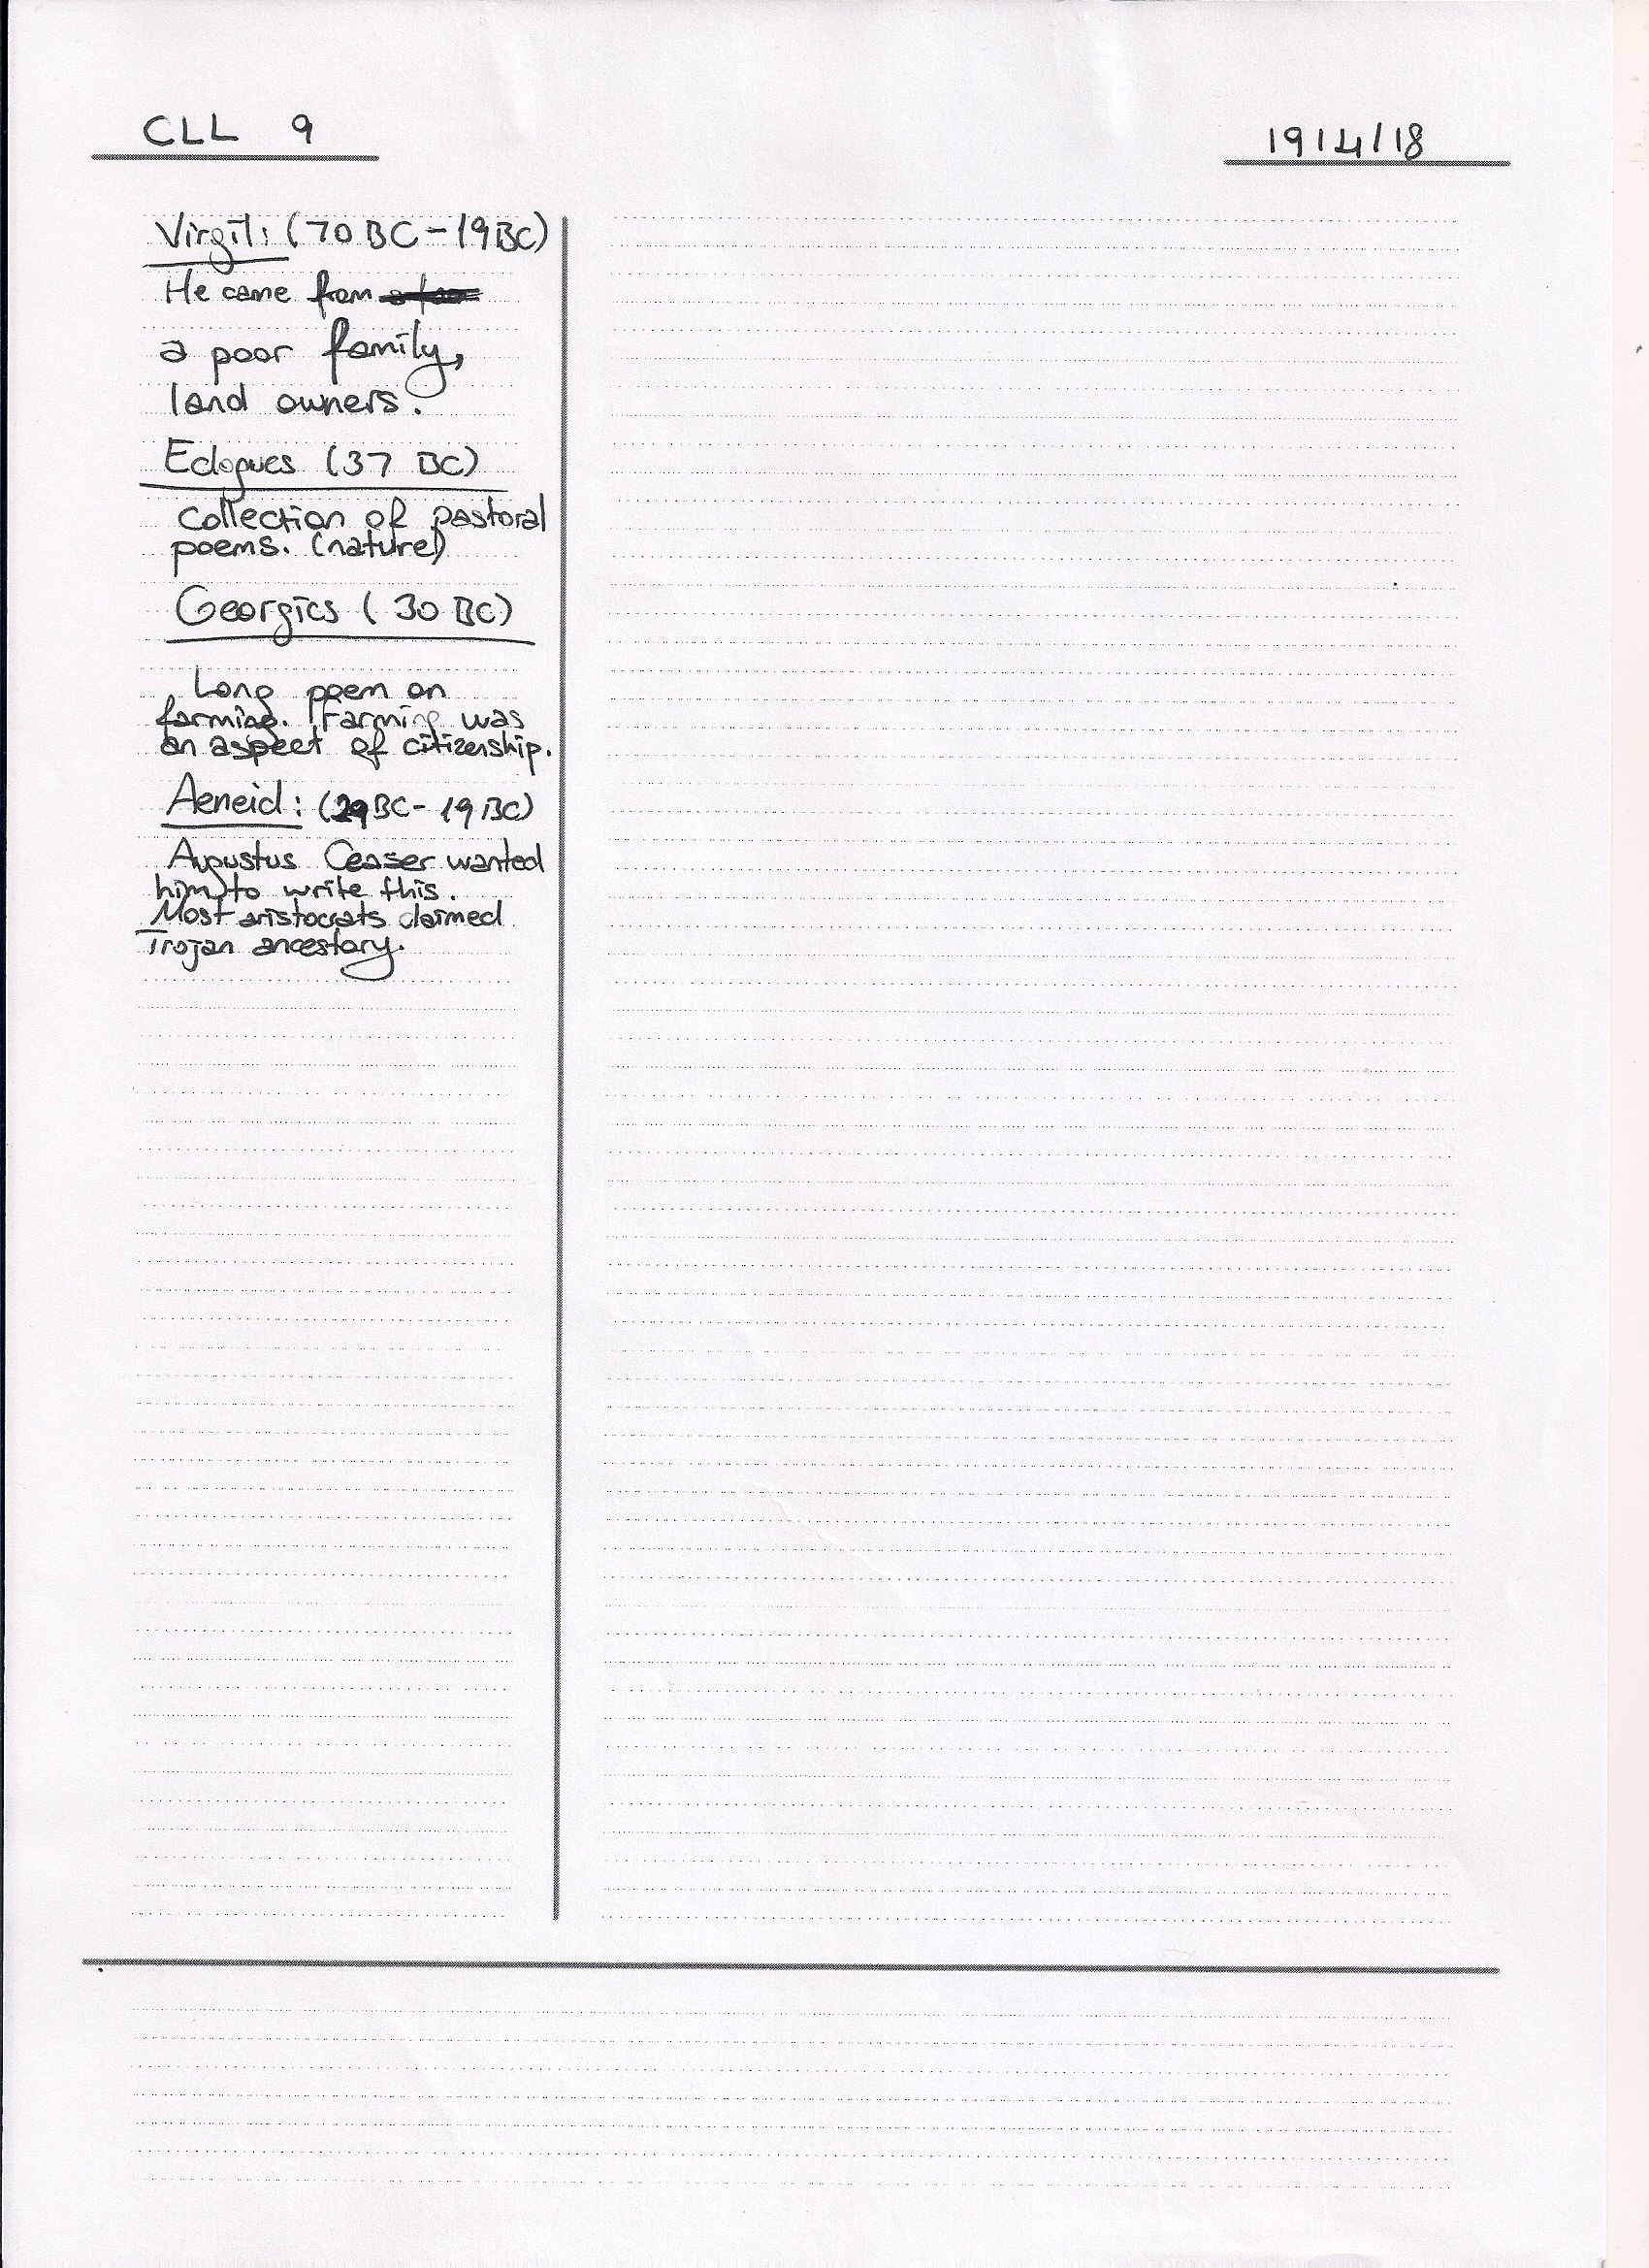 CLL 9
19/4/18
Virgil: (70 BC - 19 BC)
He came from
a poor family,
land owners.
Eclogues (37 BC)
Collection of pastoral
poems. (nature)
Georgics (30 BC)
Long poem on
farming. Farming was
an aspect of citizenship.
Aeneid: (29 BC - 19 BC)
Augustus Ceaser wanted
him to write this.
Most aristocrats claimed
Trojan ancestory.